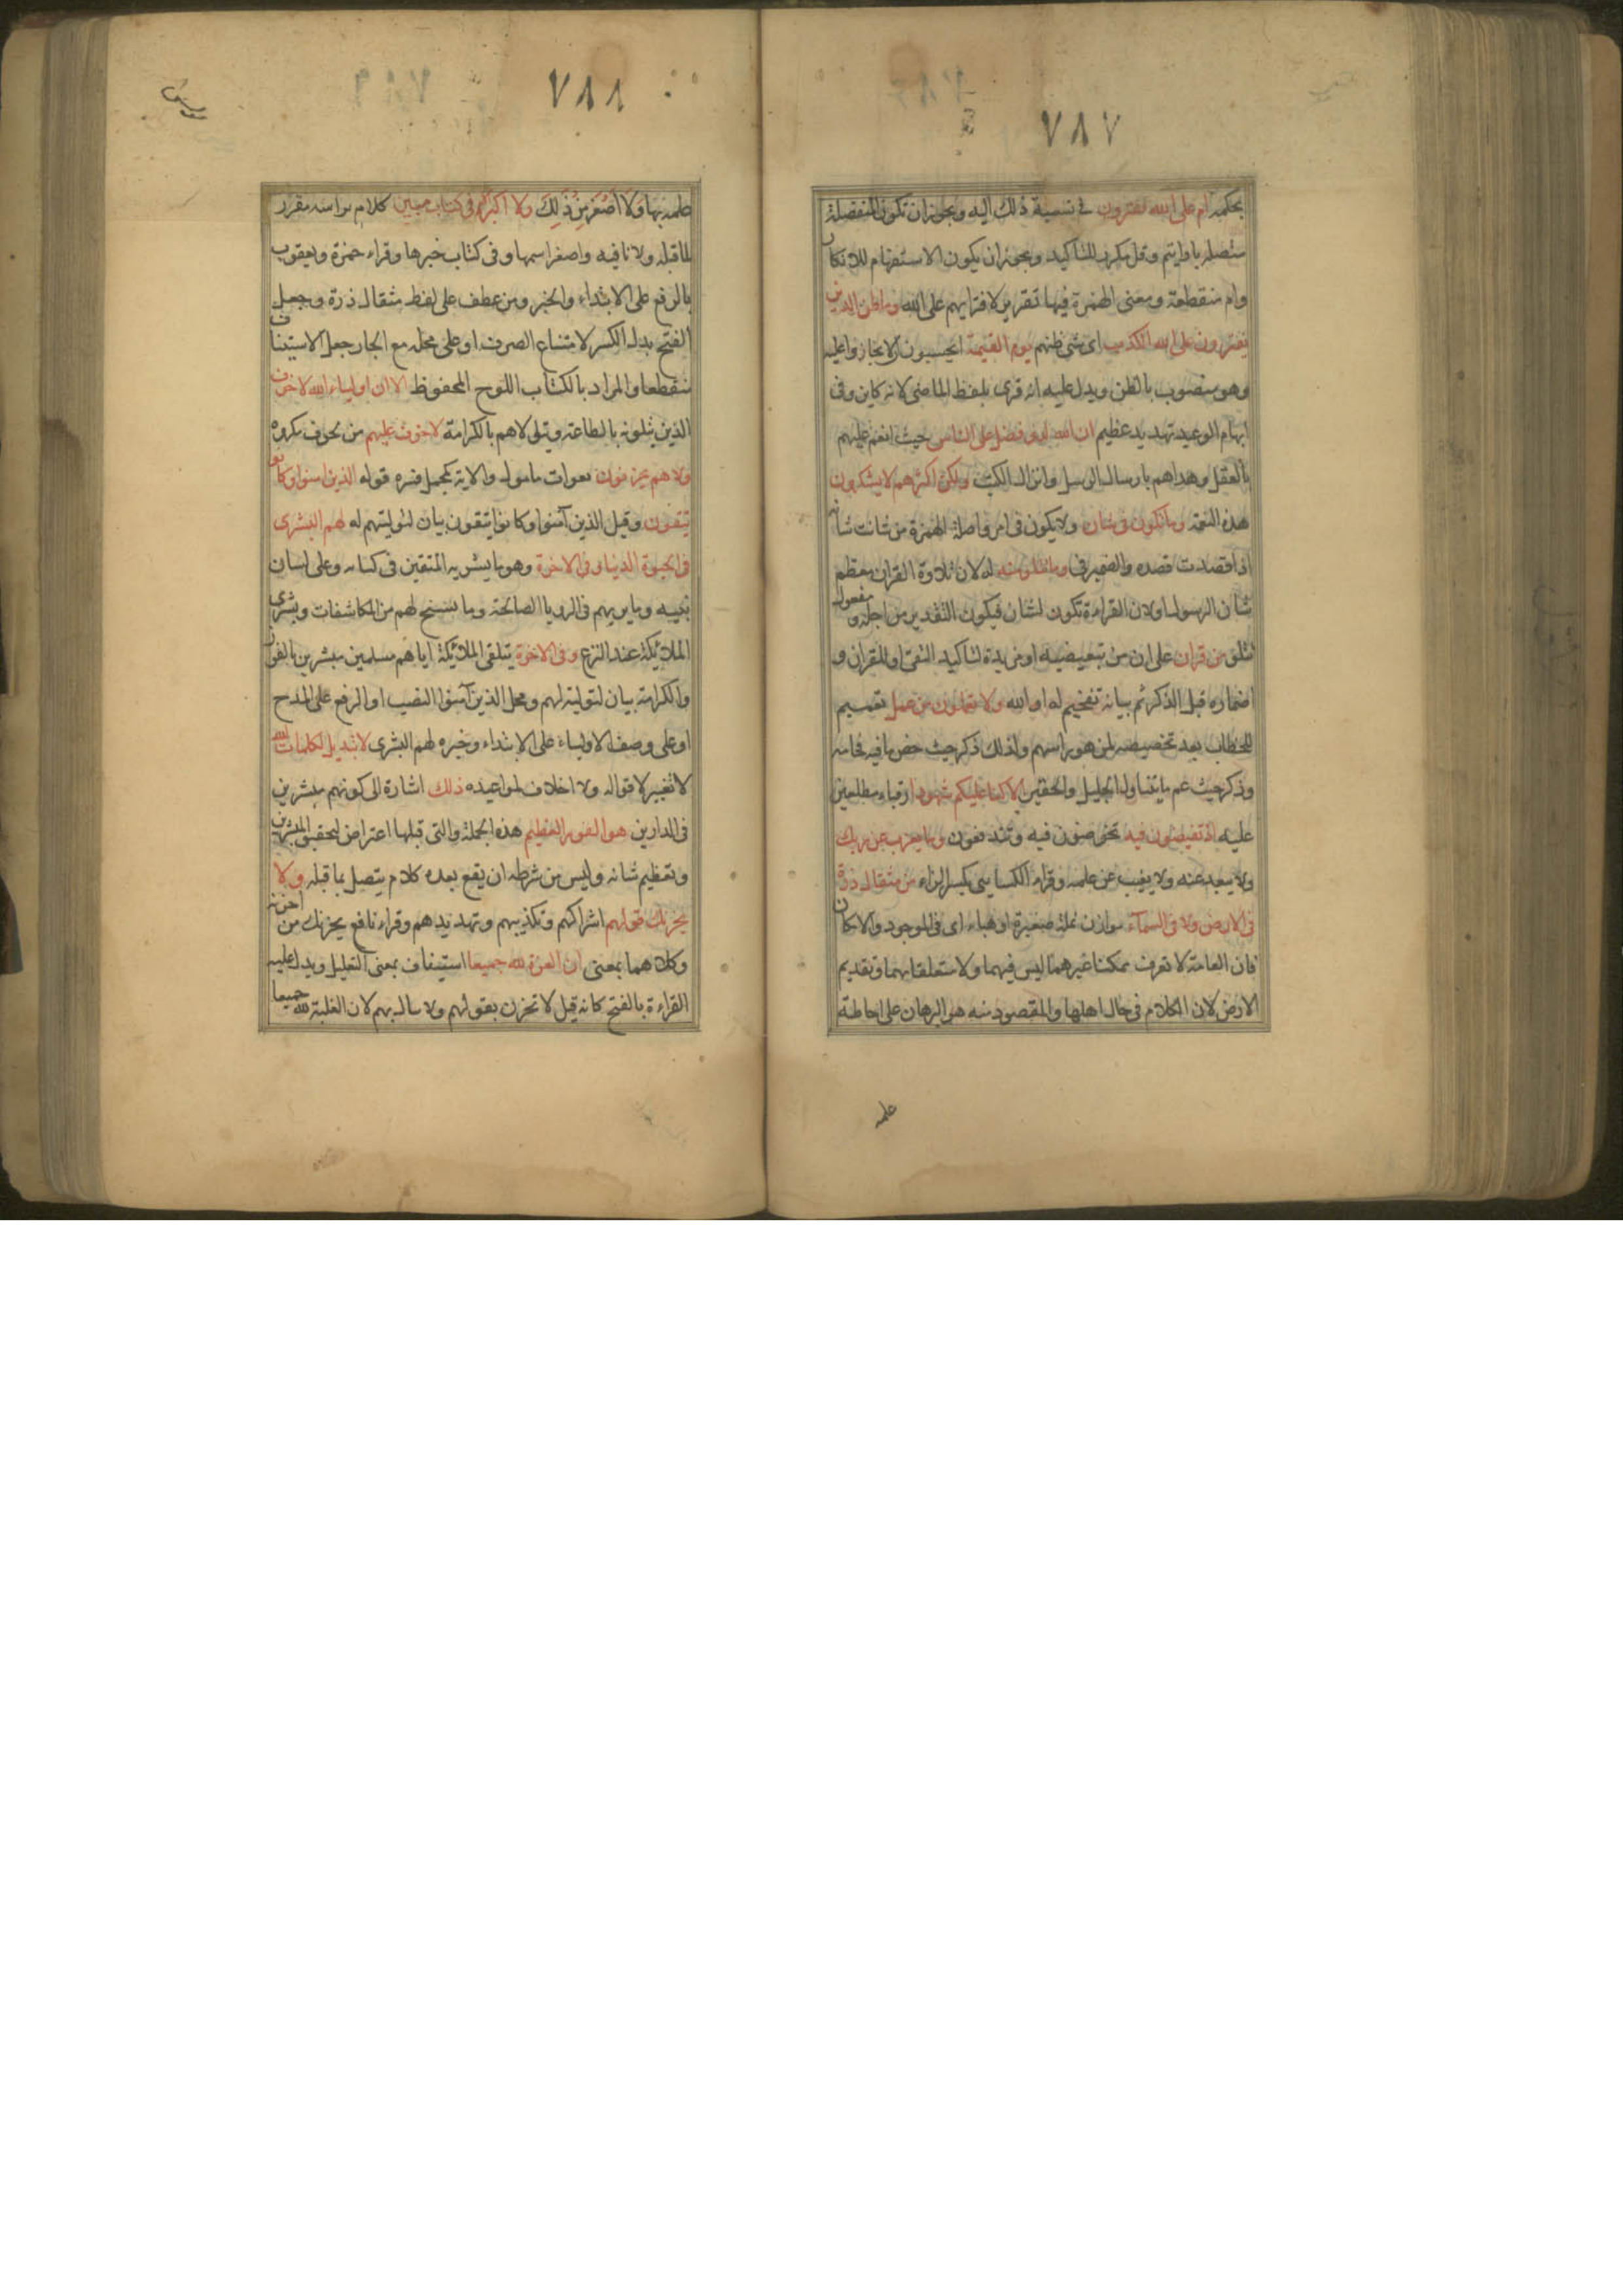 ٧٨٧
بحكمه ام على الله تفترون في نسبة ذلك اليه ويجوز ان تكون المنفصلة
متصله بارايتم وقل مكرر للتاكيد ويجوز ان يكون الاستفهام للانكار
وام منقطعة ومعنى الهمزة فيها تقرير لافترايهم على الله وما ظن الذين
يفترون على الله الكذب اى شئ ظنهم يوم القيمة ايحسبون ان لا يجازوا عليه
وهو منصوب بالظن ويدل عليه انه قرى بلفظ الماضى لانه كاين وفى
ابهام الوعيد تهديد عظيم ان الله لذو فضل على الناس حيث انعم عليهم
بالعقل وهداهم بارسال الرسل وانزال الكتب ولكن اكثرهم لا يشكرون
هذه النعمة وما تكون فى شان ولا تكون فى امر واصله الهمزة من شانت شانه
اذا قصدت قصده والضمير فى وما تتلو منه له لان تلاوة القران معظم
شان الرسول اولان القراءة تكون لشان فيكون التقدير من اجله ومفعول
تتلو من قران على ان من تبعيضيه او مزيدة لتاكيد النفى او للقران و
اضماره قبل الذكر ثم بيانه تفخيم له او لله ولا تعملون من عمل تعميم
للخطاب بعد تخصيصه لمن هو راسهم ولذلك ذكر حيث خص ما فيه فخامه
وذكر حيث عم ما يتناول الجليل والحقير الا كنا عليكم شهودا رقباء مطلعين
عليه اذ تفيضون فيه تخوضون فيه وتندفعون وما يعزب عن ربك
ولا يبعد عنه ولا يغيب عن علمه وقراء الكسايى بكسر الزاء من مثقال ذرة
فى الارض ولا فى السماء موازن نملة صغيرة او هباء اى فى الوجود والامكان
فان العامة لا تعرف ممكنا غيرهما ليس فيهما ولا متعلقا بهما وتقديم
الارض لان الكلام فى حال اهلها والمقصود منه هو البرهان على احاطة
علمه
٧٨٨
علمه بها وَلَا اَصْغَرَ مِنْ ذَلِكَ ولا اكبر الا فى كتاب مبين كلام براسه مقرر
لما قبله ولا نافيه واصغر اسمها وفى كتاب خبرها وقراء حمزة ويعقوب
بالرفع على الابتداء والخبر ومن عطف على لفظ مثقال ذرة وجعل
الفتح بدل الكسر لامتناع الصرف او على محله مع الجار جعل الاستيناف
منقطعا والمراد بالكتاب اللوح المحفوظ الا ان اولياء الله لا خوف
الذين يتلونه بالطاعة ويتولاهم بالكرامة لا خوف عليهم من لحوق مكروه
ولا هم يحزنون بفوات مامول والاية كمجمل فسره قوله الذين امنوا وكانوا
يتقون وقيل الذين آمنوا وكانوا يتقون بيان لتوليتهم له لهم البشرى
فى الحيوة الدنيا وفى الاخرة وهو ما بشر به المتقين فى كتابه وعلى لسان
نبيه وما يريهم فى الرويا الصالحة وما يسنح لهم من المكاشفات وبشرى
الملائكة عند النزع وفى الاخرة يتلقى الملائكة اياهم مسلمين مبشرين بالفوز
والكرامة بيان لتوليته لهم ومحل الذين آمنوا النصب او الرفع على المدح
او على وصف الاولياء على الابتداء وخبره لهم البشرى لا تبديل لكلمات الله
لا تغيير لاقواله ولا اخلاف لمواعيده ذلك اشارة الى كونهم مبشرين
فى الدارين هو الفوز العظيم هذه الجملة والتى قبلها اعتراض لتحقيق المبشر به
وتعظيم شانه وليس من شرطه ان يقع بعده كلام يتصل بما قبله ولا
يحزنك قولهم اشراكهم وتكذيبهم وتهديدهم وقراء نافع يحزنك من احزنه
وكلاهما بمعنى ان العزة لله جميعا استيناف بمعنى التعليل ويدل عليه
القراءة بالفتح كانه قيل لا تحزن بقولهم ولا تبال بهم لان الغلبة لله جميعا